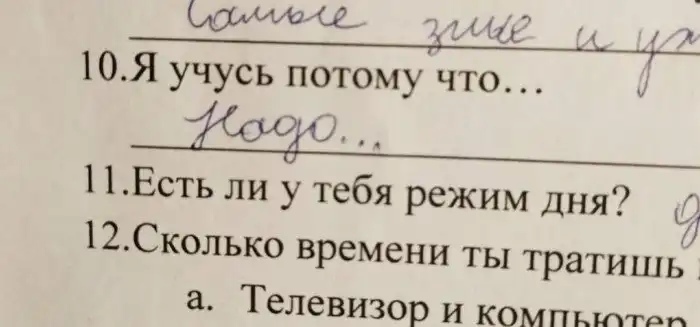 Самые злые и
10.Я учусь потому что...
Надо...
11.Есть ли у тебя режим дня?
12.Сколько времени ты тратишь
а. Телевизор и компьютер